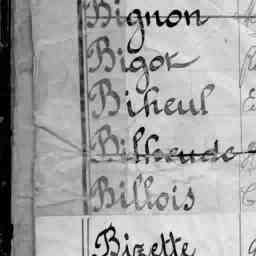 Bignon
Bigot
Biheul
Billois
Bizette